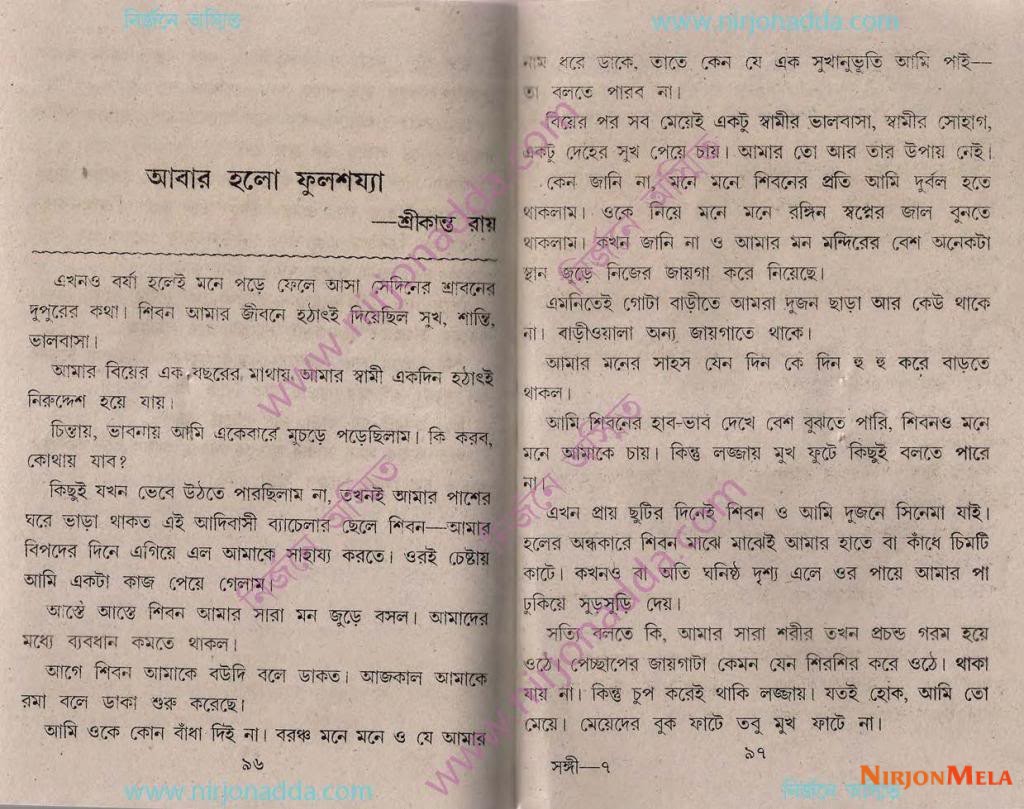 নির্জনে অসিত
www.nirjonadda.com
আবার হলো ফুলশয্যা
—শ্রীকান্ত রায়
এখনও বর্ষা হলেই মনে পড়ে ফেলে আসা সেদিনের শ্রাবনের
দুপুরের কথা। শিবন আমার জীবনে হঠাৎই দিয়েছিল সুখ, শান্তি,
ভালবাসা।
আমার বিয়ের এক বছরের মাথায় আমার স্বামী একদিন হঠাৎই
নিরুদ্দেশ হয়ে যায়।
চিন্তায়, ভাবনায় আমি একেবারে মুচড়ে পড়েছিলাম। কি করব,
কোথায় যাব?
কিছুই যখন ভেবে উঠতে পারছিলাম না, তখনই আমার পাশের
ঘরে ভাড়া থাকত এই আদিবাসী ব্যাচেলার ছেলে শিবন—আমার
বিপদের দিনে এগিয়ে এল আমাকে সাহায্য করতে। ওরই চেষ্টায়
আমি একটা কাজ পেয়ে গেলাম।
আস্তে আস্তে শিবন আমার সারা মন জুড়ে বসল। আমাদের
মধ্যে ব্যবধান কমতে থাকল।
আগে শিবন আমাকে বউদি বলে ডাকত। আজকাল আমাকে
রমা বলে ডাকা শুরু করেছে।
আমি ওকে কোন বাঁধা দিই না। বরঞ্চ মনে মনে ও যে আমার
৯৬
নাম ধরে ডাকে, তাতে কেন যে এক সুখানুভূতি আমি পাই—
তা বলতে পারব না।
বিয়ের পর সব মেয়েই একটু স্বামীর ভালবাসা, স্বামীর সোহাগ,
একটু দেহের সুখ পেয়ে চায়। আমার তো আর তার উপায় নেই।
কেন জানি না, মনে মনে শিবনের প্রতি আমি দুর্বল হতে
থাকলাম। ওকে নিয়ে মনে মনে রঙ্গিন স্বপ্নের জাল বুনতে
থাকলাম। কখন জানি না ও আমার মন মন্দিরের বেশ অনেকটা
স্থান জুড়ে নিজের জায়গা করে নিয়েছে।
এমনিতেই গোটা বাড়ীতে আমরা দুজন ছাড়া আর কেউ থাকে
না। বাড়ীওয়ালা অন্য জায়গাতে থাকে।
আমার মনের সাহস যেন দিন কে দিন হু হু করে বাড়তে
থাকল।
আমি শিবনের হাব-ভাব দেখে বেশ বুঝতে পারি, শিবনও মনে
মনে আমাকে চায়। কিন্তু লজ্জায় মুখ ফুটে কিছুই বলতে পারে
না।
এখন প্রায় ছুটির দিনেই শিবন ও আমি দুজনে সিনেমা যাই।
হলের অন্ধকারে শিবন মাঝে মাঝেই আমার হাতে বা কাঁধে চিমটি
কাটে। কখনও বা অতি ঘনিষ্ঠ দৃশ্য এলে ওর পায়ে আমার পা
ঢুকিয়ে সুড়সুড়ি দেয়।
সত্যি বলতে কি, আমার সারা শরীর তখন প্রচন্ড গরম হয়ে
ওঠে। পেচ্ছাপের জায়গাটা কেমন যেন শিরশির করে ওঠে। থাকা
যায় না। কিন্তু চুপ করেই থাকি লজ্জায়। যতই হোক, আমি তো
মেয়ে। মেয়েদের বুক ফাটে তবু মুখ ফাটে না।
সঙ্গী—৭
৯৭
www.nirjonadda.com
নির্জনে অসিত
NIRJONMELA